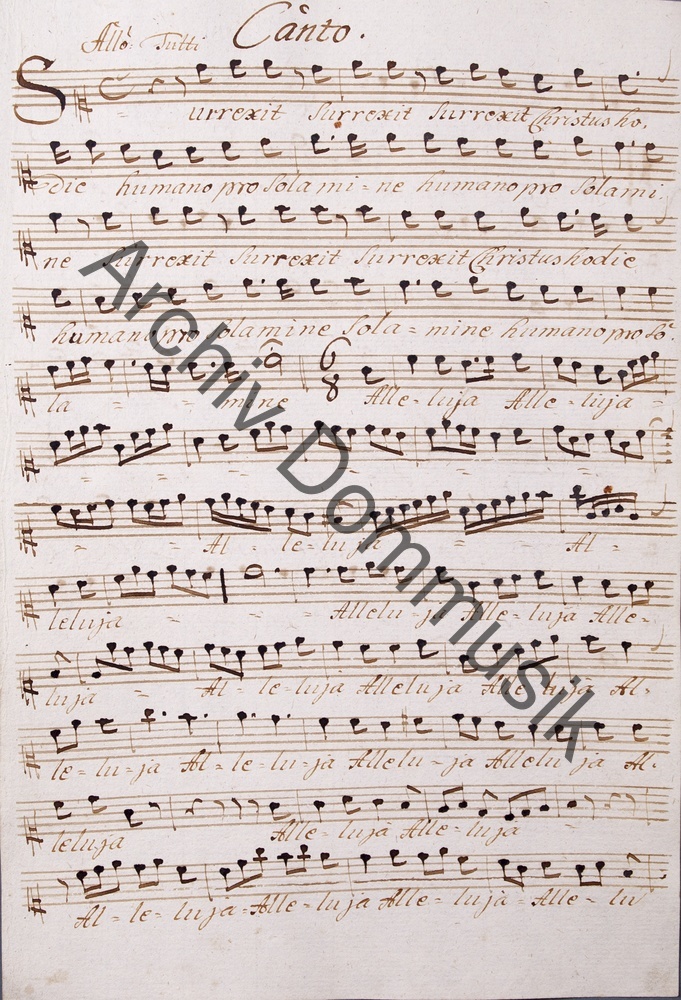 Canto.
Allo: Tutti
Surrexit Surrexit Surrexit Christus ho,
die humano pro Solami = ne humano pro Solami:
ne Surrexit Surrexit Surrexit Christus hodie
humano pro Solamine Sola = mine humano pro So:
la = = mine Alle = luja Alle = luja =
= = = = = = = =
= = Al = le = luja = = Al =
leluja = = = Allelu = ja Alle = luja Alle =
luja = Al = le = luja Alleluja Alle = luja Al =
le = lu = ja Al = le = lu = ja Allelu = ja Allelu ja Al =
leluja Alle = luja Alle = luja =
Al = le = luja = Alle = luja Alle = luja = Alle = lu
Archiv Dommusik